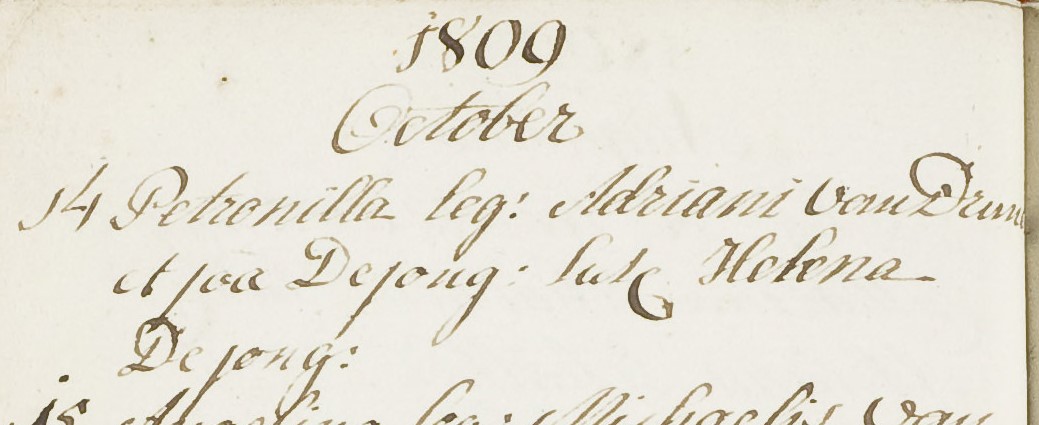 1809
October
14 Petronilla leg: Adriani van Drune
et joa Dejong: lusc Helena
Dejong:
15 Angelina leg: Michaelis van